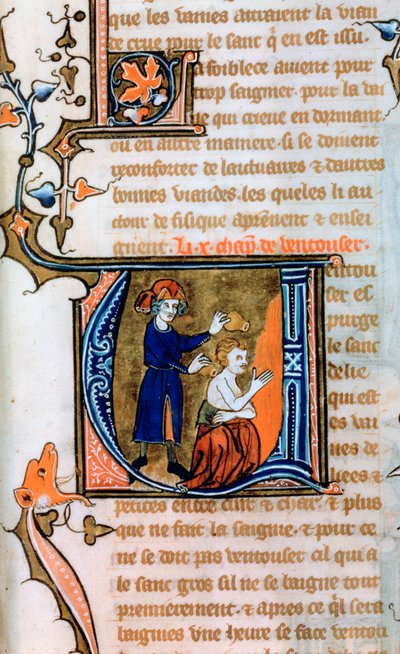 que les vaines atraient la vian
te crue pour le sanc q̄ en est issu.
a foiblece avient pour
trop saignier. pour la vai
ne qui crieve en dormant
ou en autre maniere. si se doivent
reconforter de laituaires & dautres
bonnes viandes. les queles li au
ctour de fisique aprēnent & ensei
gnent. Li .x. chap̄. de ventouser.
entou
ser es
purge
le sanc
delie
qui est
es vai
nes de
petites entre cuir & char. & plus
que ne fait la saignie. & pour ce
ne se doit pas ventouser cil qui a
le sanc gros sil ne se baigne tout
premierement. & apres ce q̄l sera
baigniés vne heure se face ventou